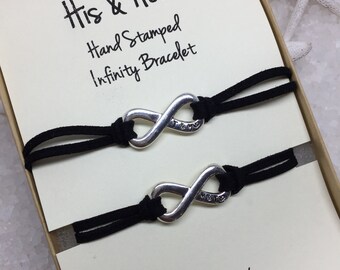 His &
Hand Stamped
Infinity Bracelet